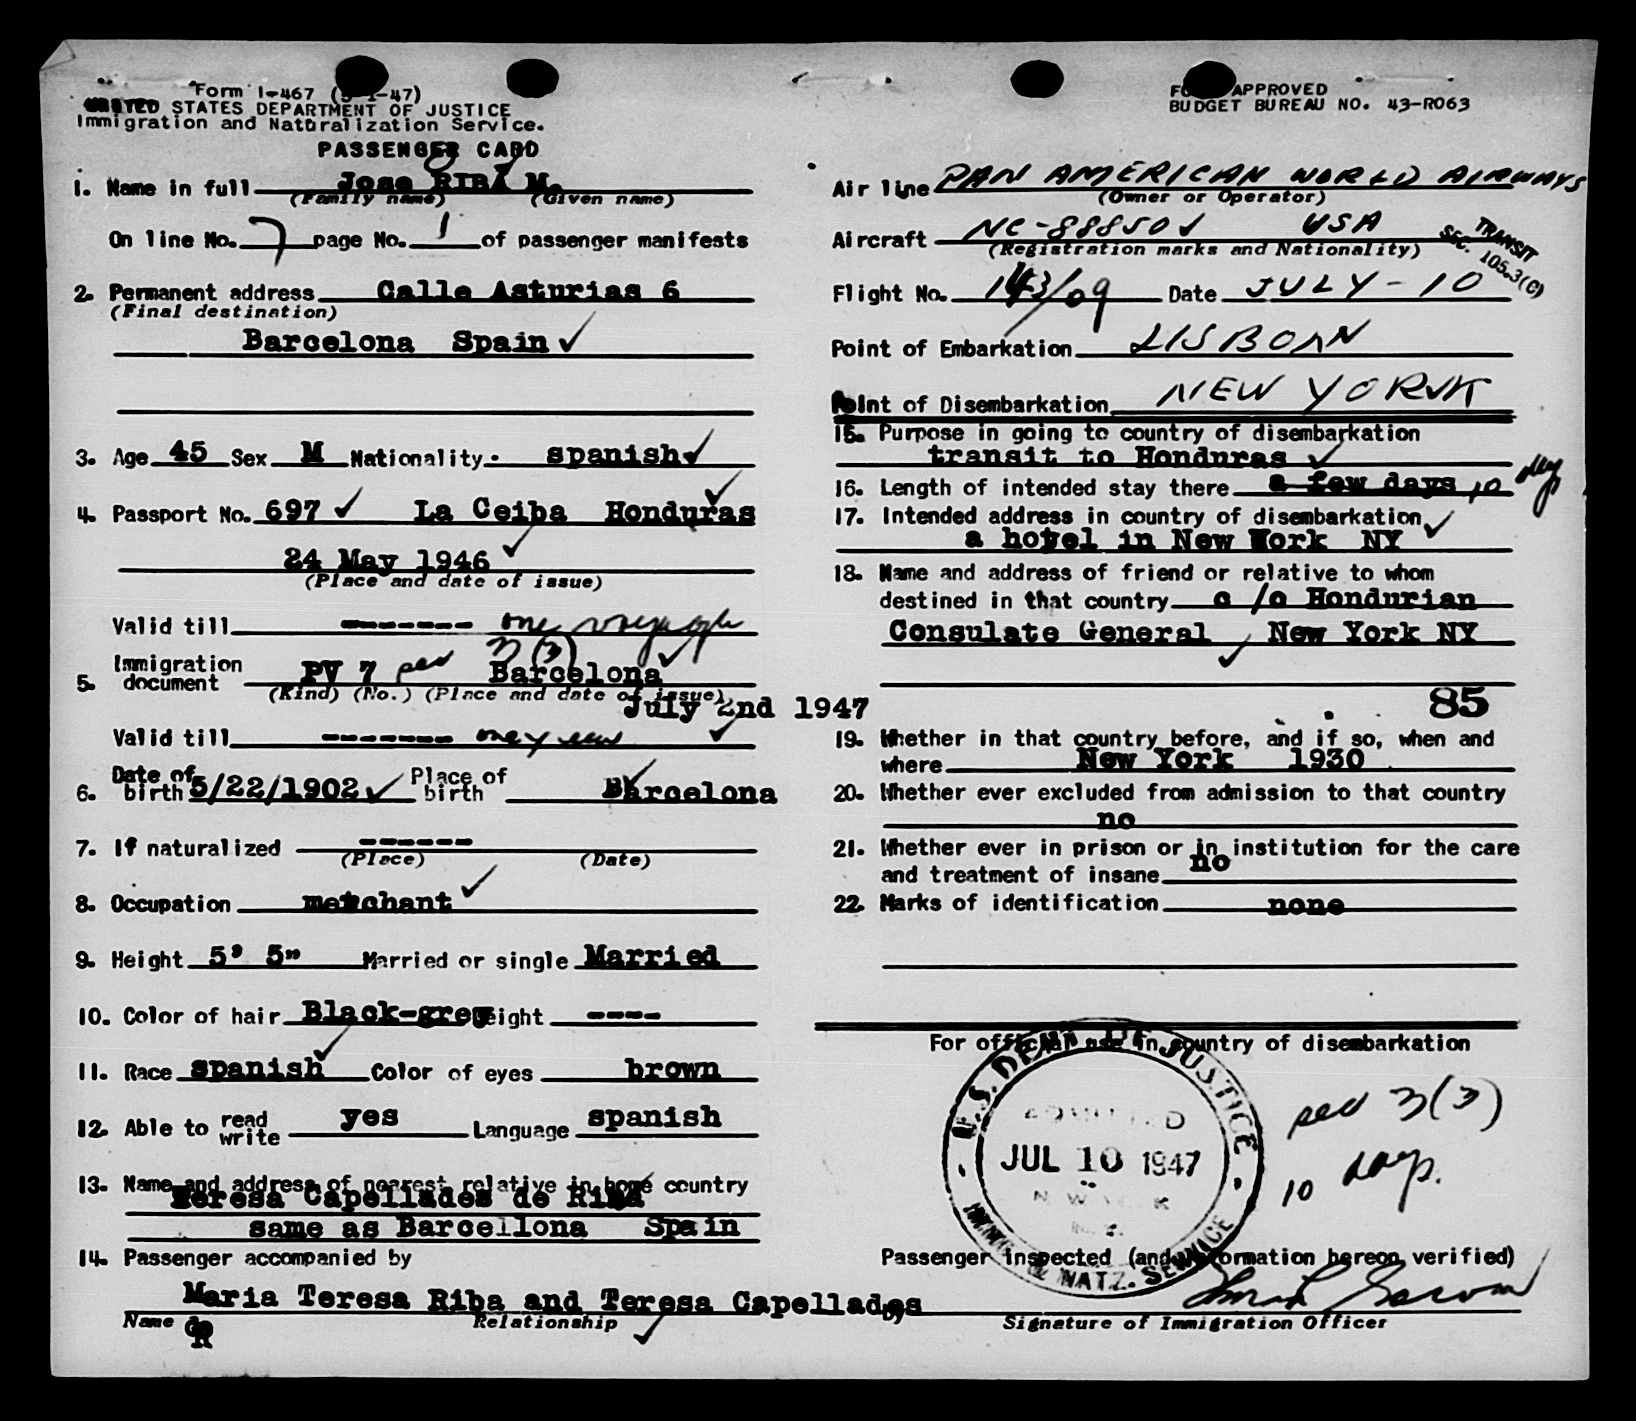 Form I-467 (5-1-47)
UNITED STATES DEPARTMENT OF JUSTICE
Immigration and Naturalization Service.
PASSENGER CARD
1. Name in full Jose RIBA M.
(Family name) (Given name)
On line No. 7 page No. 1 of passenger manifests
2. Permanent address Calle Asturias 6
(Final destination)
Barcelona Spain
3. Age 45 Sex M Nationality spanish
4. Passport No. 697 La Ceiba Honduras
24 May 1946
(Place and date of issue)
Valid till ------- one voyage
5. Immigration document PV 7 sec 3 (3) Barcelona
(Kind) (No.) (Place and date of issue)
July 2nd 1947
Valid till ------- one year
6. Date of birth 5/22/1902 Place of birth Barcelona
7. If naturalized ------
(Place) (Date)
8. Occupation merchant
9. Height 5' 5" Married or single Married
10. Color of hair Black-grey Weight ----
11. Race spanish Color of eyes brown
12. Able to read write yes Language spanish
13. Name and address of nearest relative in home country
Teresa Capellades de Riba
same as Barcellona Spain
14. Passenger accompanied by
Maria Teresa Riba and Teresa Capellades
Name Relationship
de R
APPROVED
BUDGET BUREAU NO. 43-R063
Air line PAN AMERICAN WORLD AIRWAYS
(Owner or Operator)
Aircraft NC-88850 USA
(Registration marks and Nationality)
TRANSIT
SEC. 105.3(C)
Flight No. 143/09 Date JULY-10
Point of Embarkation LISBOAN
Point of Disembarkation NEW YORK
15. Purpose in going to country of disembarkation
transit to Honduras
16. Length of intended stay there a few days 10 days
17. Intended address in country of disembarkation
a hotel in New York NY
18. Name and address of friend or relative to whom
destined in that country c /o Hondurian
Consulate General New York NY
85
19. Whether in that country before, and if so, when and
where New York 1930
20. Whether ever excluded from admission to that country
no
21. Whether ever in prison or in institution for the care
and treatment of insane no
22. Marks of identification none
For official use in country of disembarkation
U.S. DEPT. OF JUSTICE
ADMITTED
JUL 10 1947
IMMIG. & NATZ. SERVICE
sec 3(3)
10 days.
Passenger inspected (and information hereon verified)
by
Signature of Immigration Officer